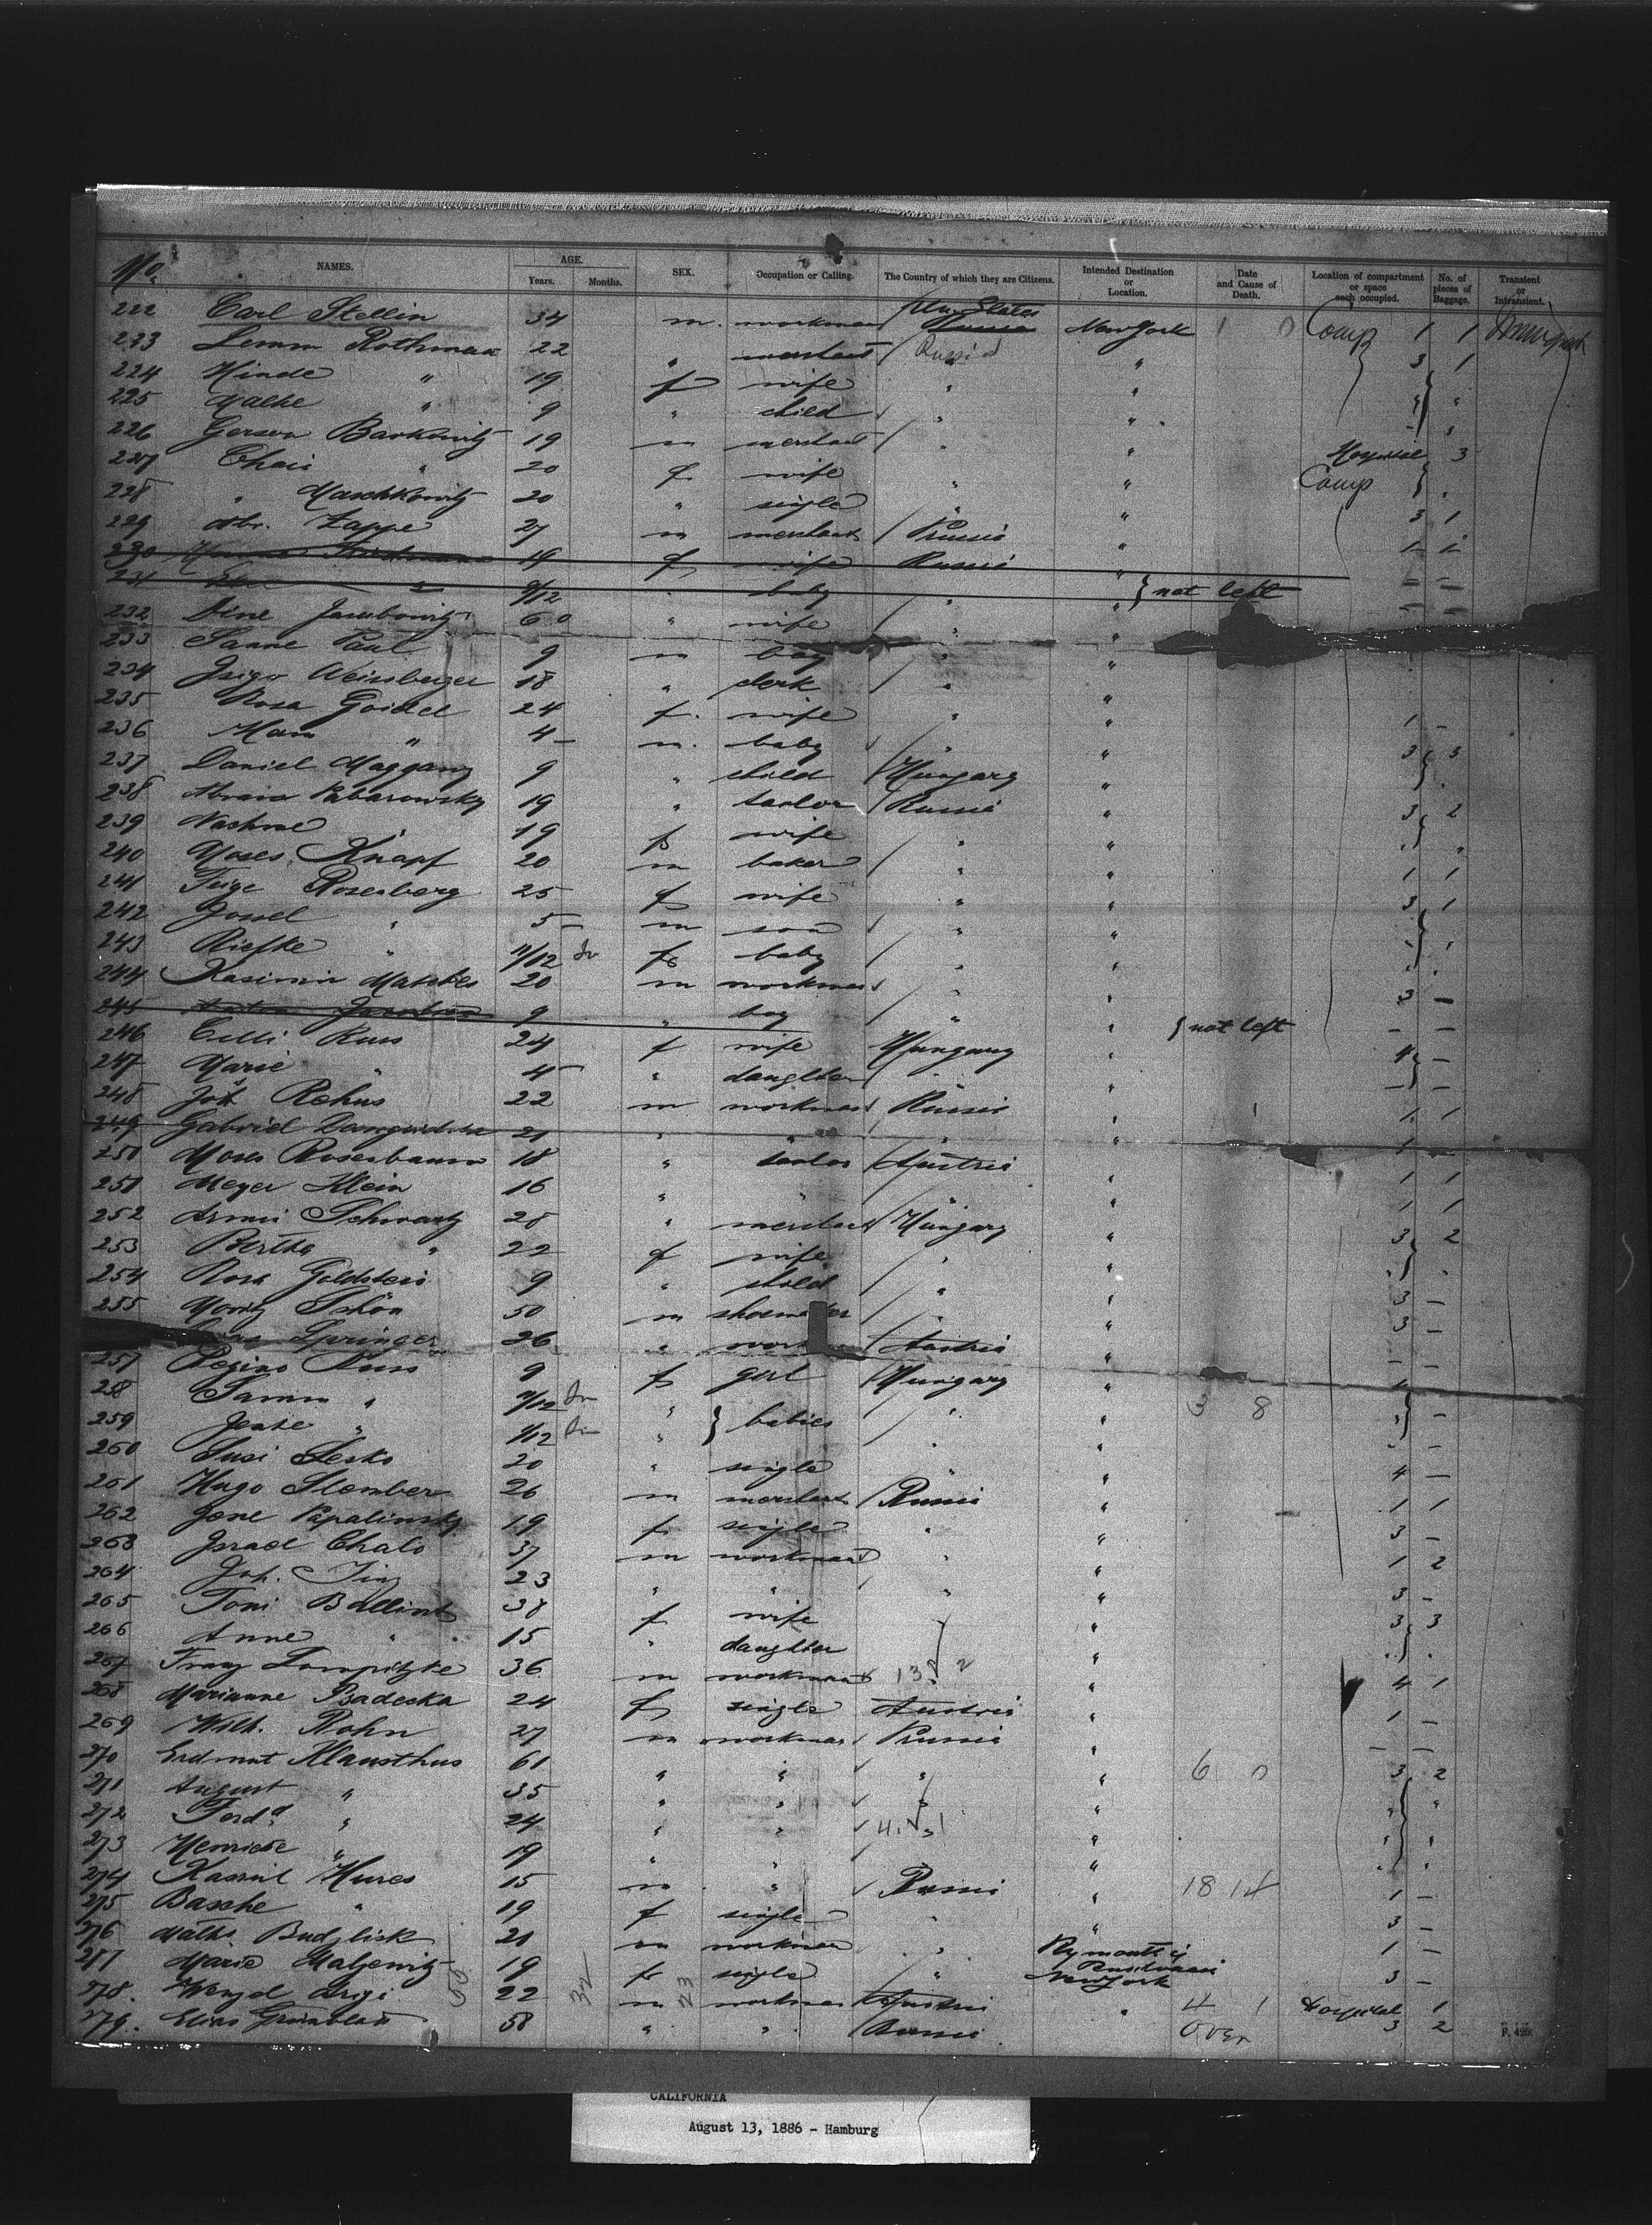 No. NAMES. AGE. Years. Months. SEX. Occupation or Calling. The Country of which they are Citizens. Intended Destination or Location. Date and Cause of Death. Location of compartment or space each occupied. No. of pieces of Baggage. Transient or Intransient.
222 Carl Stellin 34 m. workman Un. States Russia New York 1 0 Comp 1 1
223 Lemm Rothman 22 " merchant Russia " 3 1
224 Hinde " 19 f wife " "
225 Malke " 9 " child " "
226 Gerson Barkowitz 19 m merchant " " Hospital 3
227 Chaie " 20 f wife " " Comp
228 " Maschkowitz 20 " single " " 3 1
229 Abr. Zappe 27 m merchant Russia " 1 1
230 19 f wife Russia " – –
231 9/12 " baby " " } not left – –
232 Dine Jacubowitz 60 " wife " "
233 Sanne Paul 9 m boy " "
234 Isigo Weissberger 18 " clerk " "
235 Rosa Goidel 24 f. wife " " 1 –
236 Mam " 4 – m. baby " " 3 3
237 Daniel Maggany 9 " child Hungary "
238 Abram Kabarowsky 19 " tailor Russia " 3 2
239 Nachme " 19 f wife " " " "
240 Moses Knapf 20 m baker " " 1 1
241 Feige Rosenberg 25 f wife " " 3 1
242 Jossel " 5 – m son " "
243 Riefke " 11/12 f baby " "
244 Kasimir Matches 20 m workman " " 3 –
245 9 " boy " " } not left – –
246 Cilli Russ 24 f wife Hungary " 4 –
247 Marie " 4 " daughter " " – –
248 Joh Rohus 22 m workman Russia " 1 1
249 Gabriel 21 " " " " 1 –
250 Moses Rosenbaum 18 " tailor Austria " 1 1
251 Meyer Klein 16 " " " " 1 1
252 Armin Schwartz 28 " merchant Hungary " 3 2
253 Bertha " 22 f wife " " " "
254 Rosa Goldstein 9 " child " " 3 –
255 Moritz Schön 50 m shoemaker " " 3 –
Springer 26 " work Austria " – –
257 Regino Russ 9 f girl Hungary "
258 Samm " 9/12 " } babies " " 3 8 " –
259 Jente " 1/12 " " " – –
260 Susi Lesko 20 " single " " 4 –
261 Hugo Slember 26 m merchant Russia " 1 1
262 Jene Papalinsky 19 f single " " 3 –
263 Israel Chalo 37 m workman " " 1 2
264 Joh. 23 " " " " 3 –
265 Toni Ballint 38 f wife " 3 3
266 Anne " 15 " daughter " " "
267 Franz Lampitzke 36 m workman 13 2 " 4 1
268 Marianne Psadecka 24 f single Austria " 1 –
269 Wilh. Rohn 27 m workman Russia " – –
270 Erdmut Klausthus 61 " " " " 6 0 3 2
271 August " 35 " " " " " "
272 Ferd. " 24 " " " " " "
273 Henriette " 19 " " " " "
274 Kassiil Hures 15 m " Russia " 18 14 1 –
275 Basche " 19 f single " " 3 –
276 Maths. Budzlisk 21 m workman " 1 –
277 Marie Malzewitz 19 f single " New York 3 –
278. Wenzel 22 m workman Austria " 4 1 Hospital 1
279. Elias Grünblatt 58 " " Russia over 3 2
F. 425.
CALIFORNIA
August 13, 1886 - Hamburg